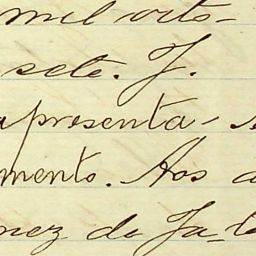 mil oito-
sete. J.
apresenta-
mento. Aos
mez de Ja-